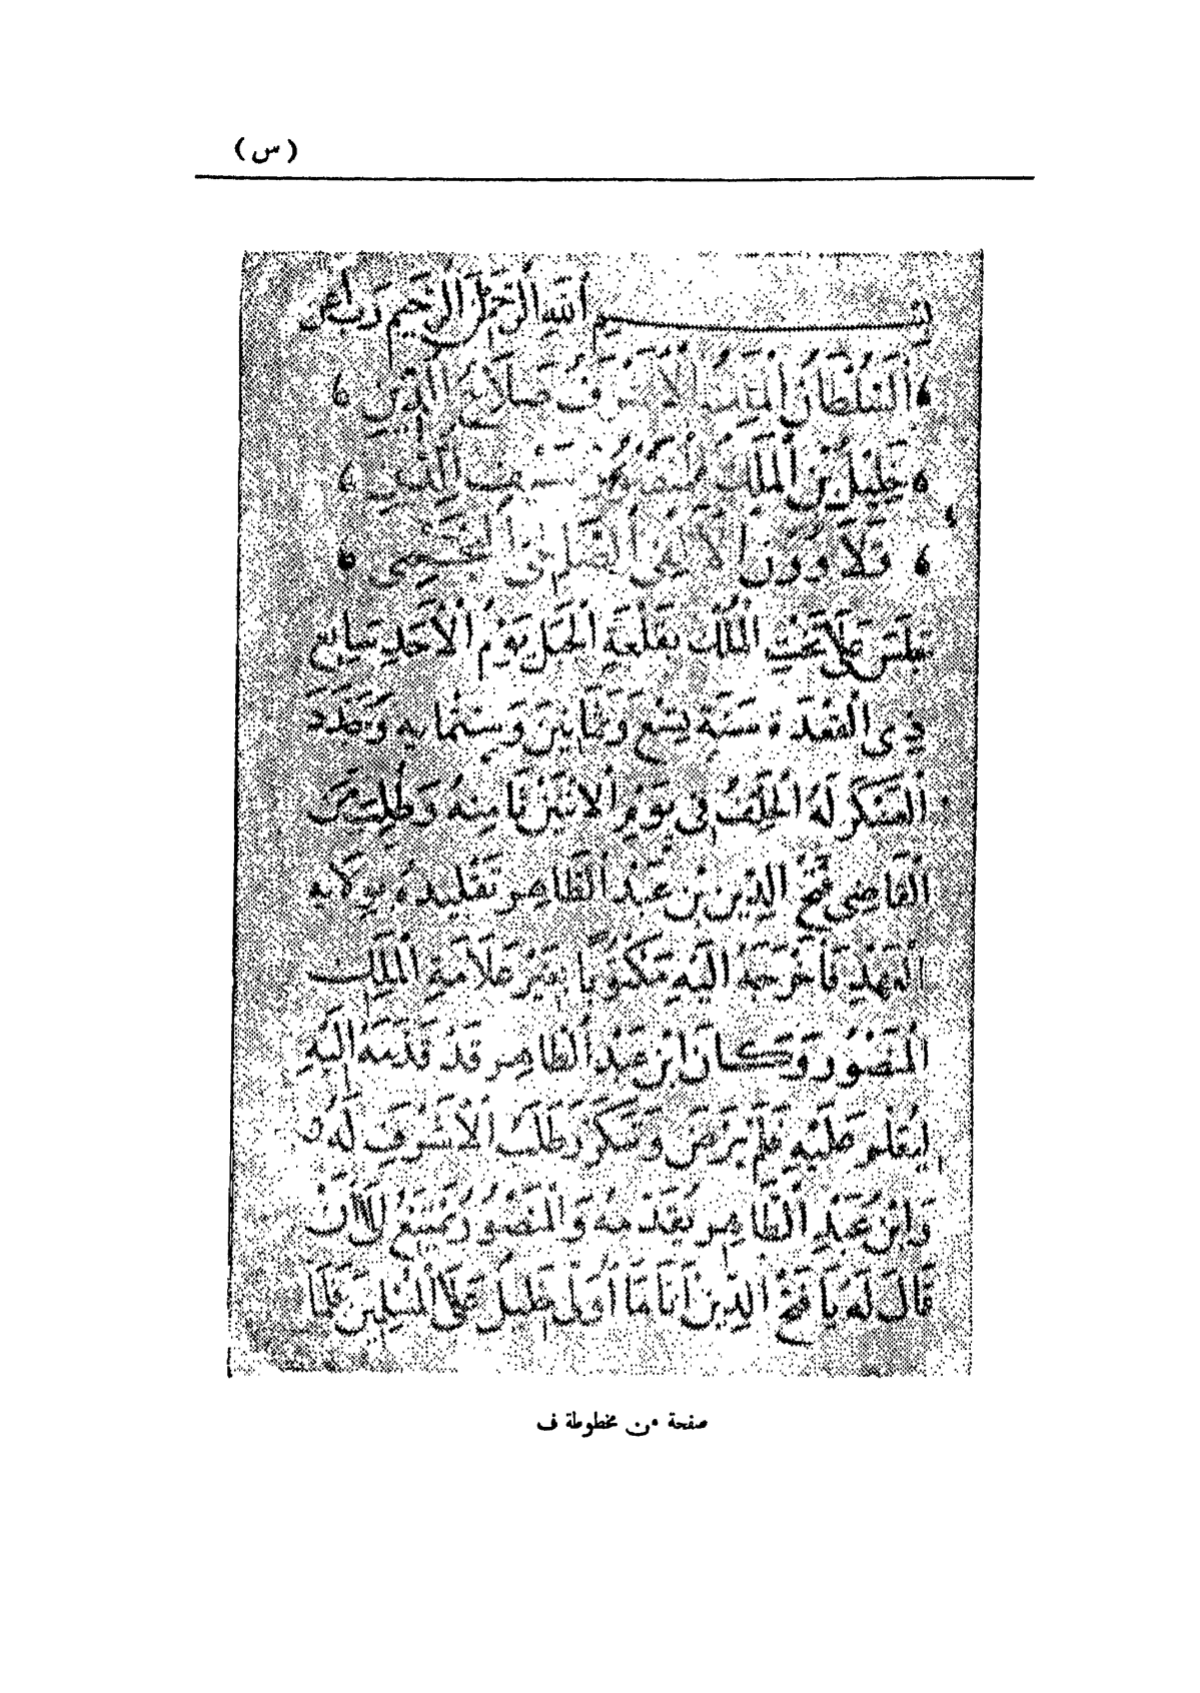 (س)
بِسْمِ اللَّهِ الرَّحْمٰنِ الرَّحِيمِ رَبِّ أَعِنْ
السُّلْطَانُ الْمَلِكُ الْأَشْرَفُ صَلَاحُ الدِّينِ
خَلِيلُ بْنُ الْمَلِكِ الْمَنْصُورِ سَيْفِ الدِّينِ
قَلَاوُونَ الْأَلْفِيِّ الصَّالِحِيِّ النَّجْمِيِّ
جَلَسَ عَلَى تَخْتِ الْمُلْكِ بِقَلْعَةِ الْجَبَلِ يَوْمَ الْأَحَدِ سَابِعَ
ذِى الْقَعْدَةِ سَنَةَ تِسْعٍ وَثَمَانِينَ وَسِتِّمَايَهٍ وَجَدَّدَ
الْعَسْكَرُ لَهُ الْحَلِفَ فِى يَوْمِ الِاثْنَيْنِ ثَامِنِهِ وَطُلِبَ مِنَ
الْقَاضِى فَتْحِ الدِّينِ بْنِ عَبْدِ الظَّاهِرِ تَقْلِيدُهُ بِوِلَايَةِ
الْعَهْدِ فَأَخْرَجَهُ إِلَيْهِ مَكْتُوبًا بِغَيْرِ عَلَامَةِ الْمَلِكِ
الْمَنْصُورِ وَكَانَ ابْنُ عَبْدِ الظَّاهِرِ قَدْ قَدَّمَهُ إِلَيْهِ
لِيُعَلِّمَ عَلَيْهِ فَلَمْ يَرْضَ وَتَكَرَّرَ طَلَبُ الْأَشْرَفِ لَهُ
وَابْنُ عَبْدِ الظَّاهِرِ يُقَدِّمُهُ وَالْمَنْصُورُ يَمْتَنِعُ إِلَى أَنْ
قَالَ لَهُ يَا فَتْحَ الدِّينِ أَنَا مَا أُوَلِّى خَلِيلَ عَلَى الْمُسْلِمِينَ فَلَمَّا
صفحة من مخطوطة ف